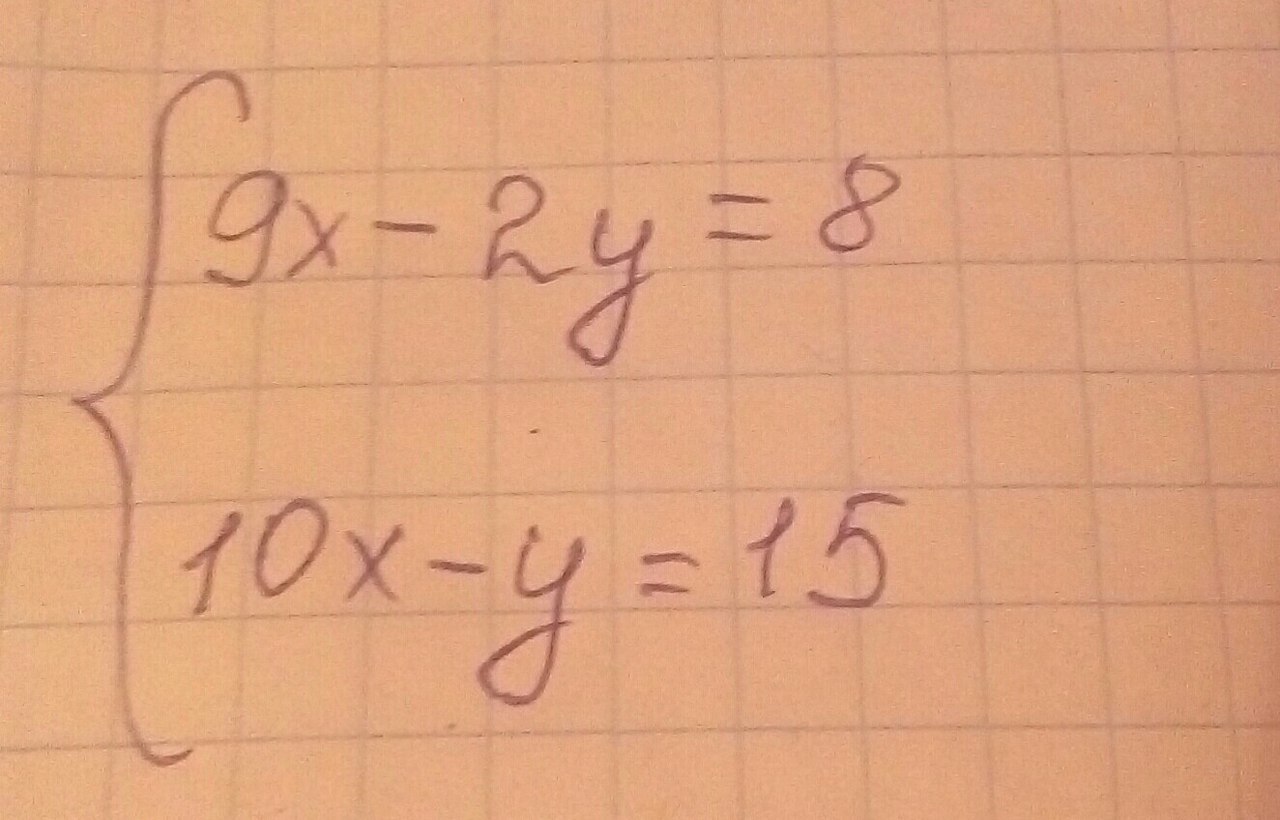 9x - 2y = 8
10x - y = 15